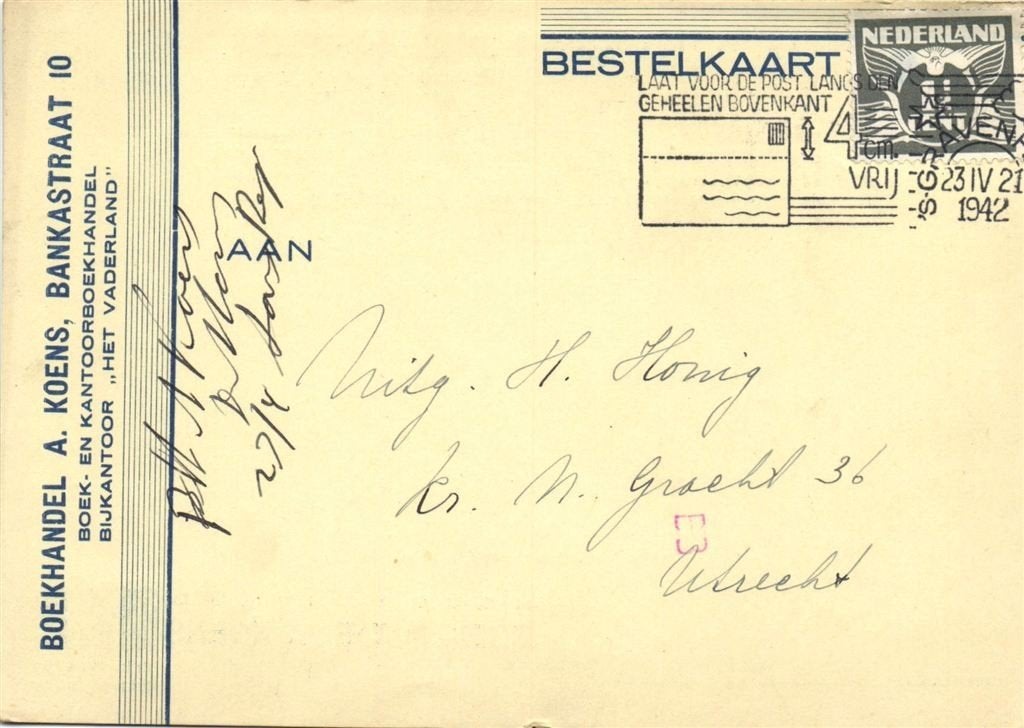 BOEKHANDEL A. KOENS, BANKASTRAAT 10
BOEK- EN KANTOORBOEKHANDEL
BIJKANTOOR „HET VADERLAND"
BESTELKAART
NEDERLAND
LAAT VOOR DE POST LANGS DEN
GEHEELEN BOVENKANT 4 cm.
VRIJ
'S-GRAVENH
23 IV 21
1942
AAN
27/4
Uitg. H. Honig
Kr. N. Gracht 36
Utrecht